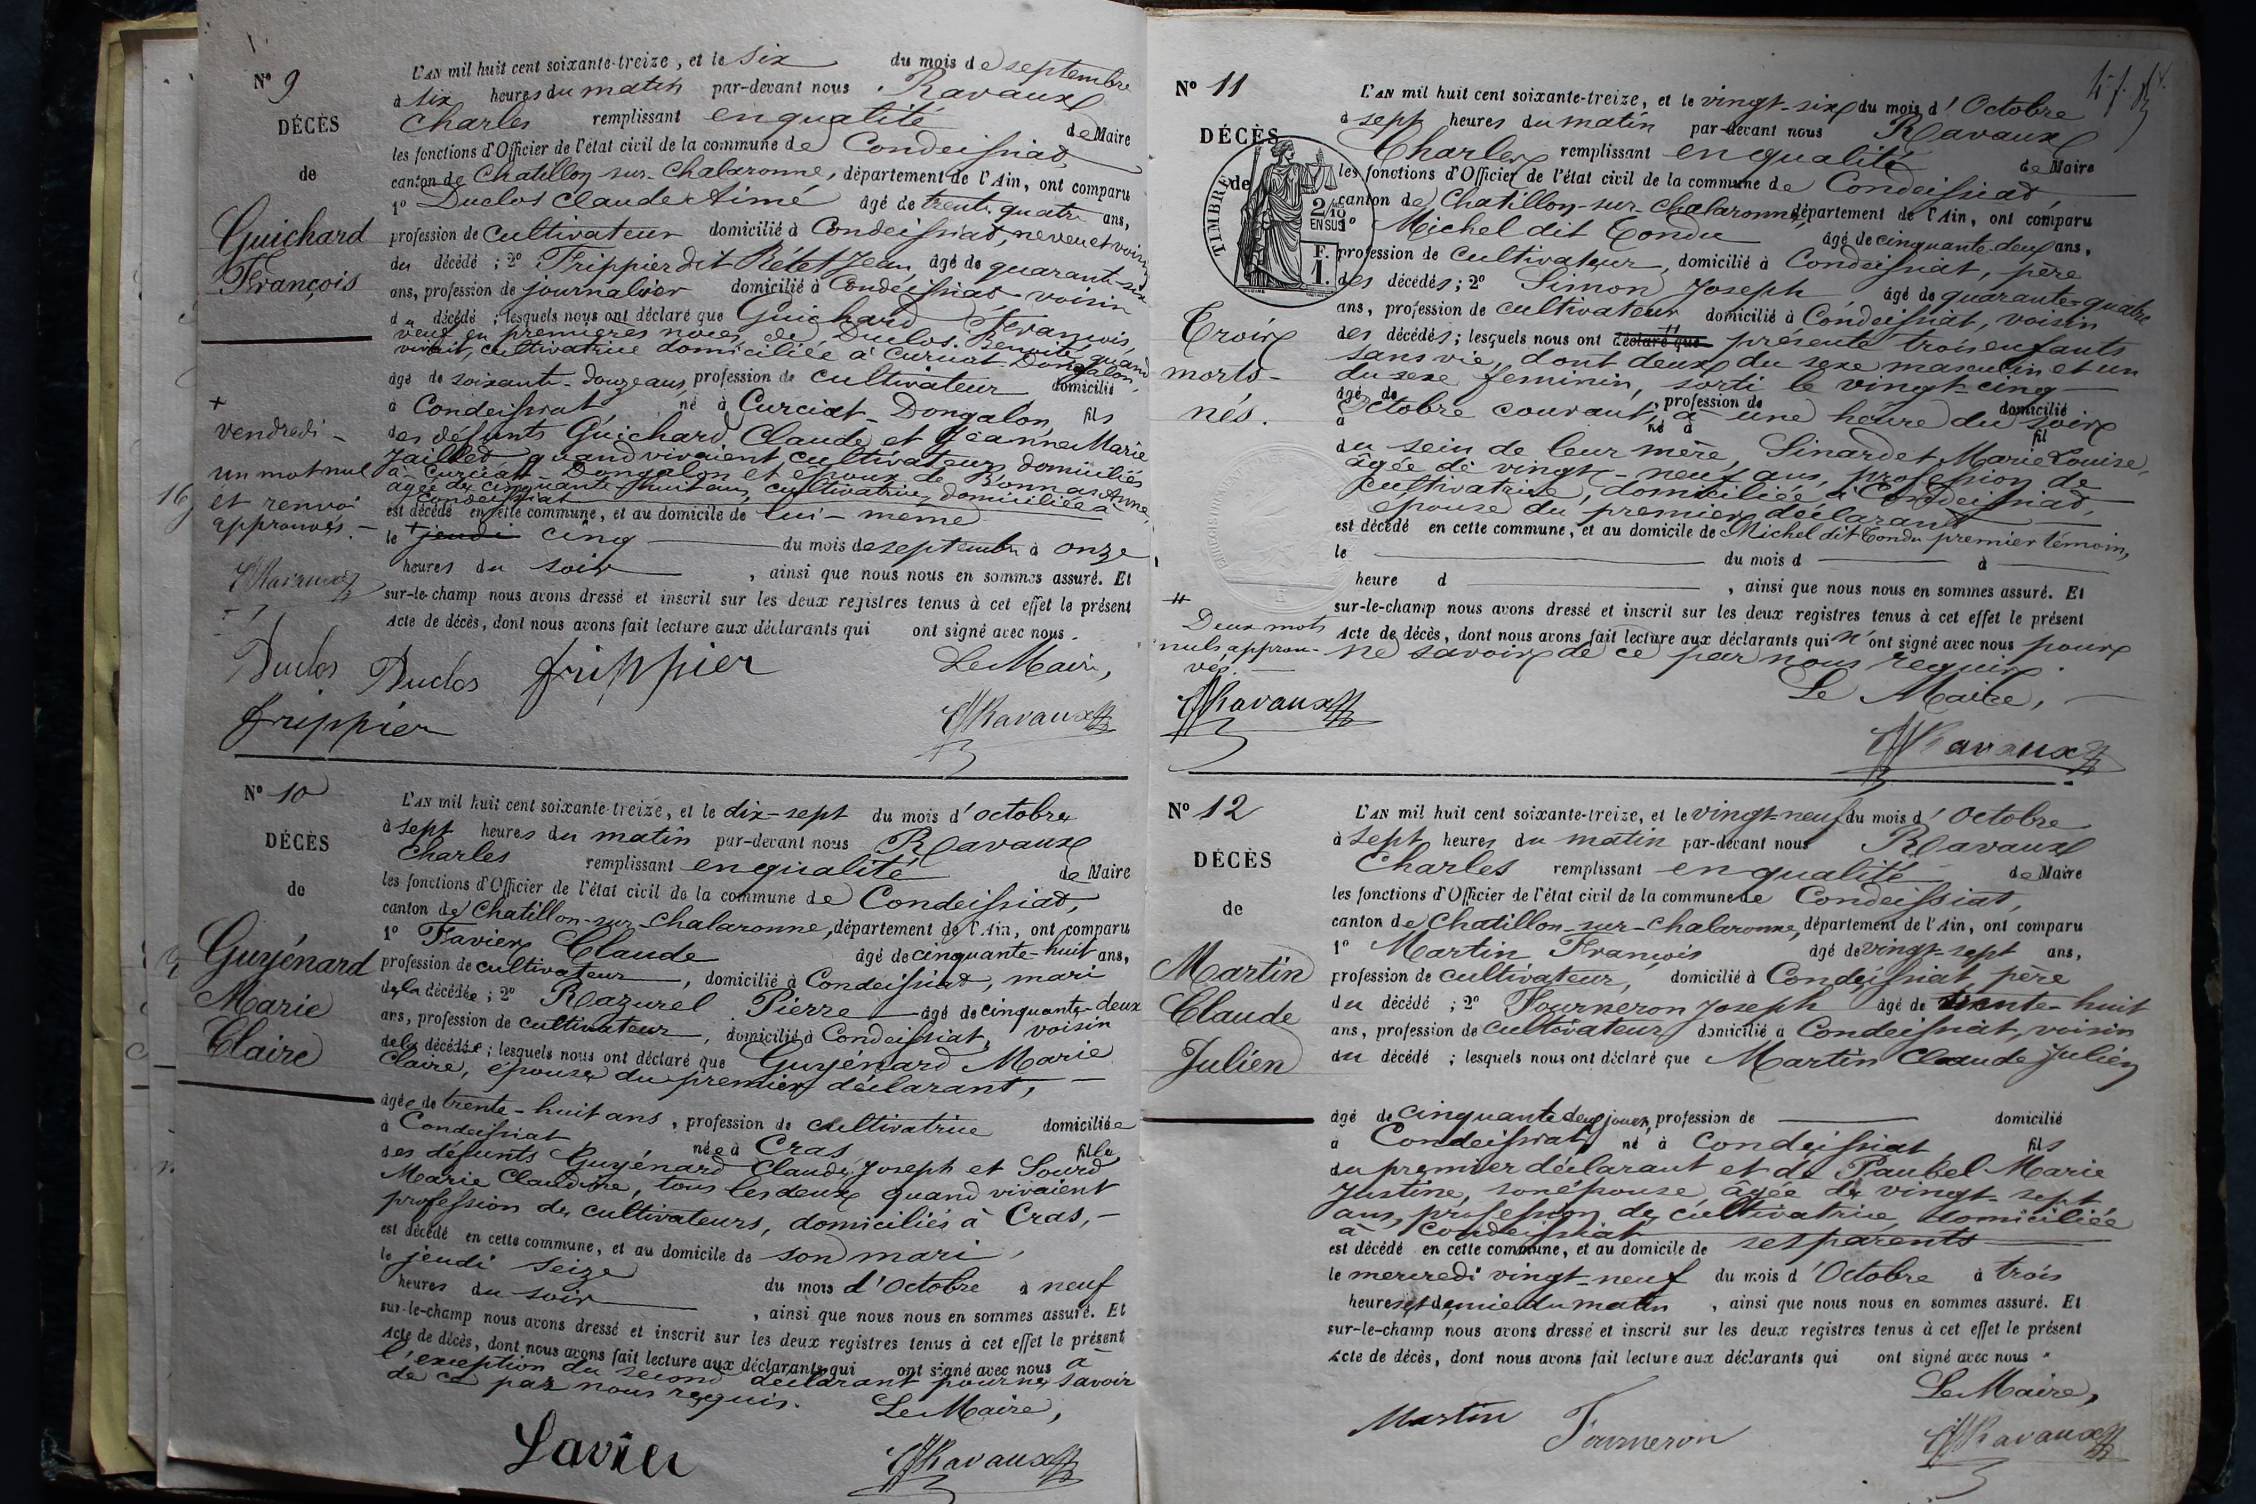 N° 9
DÉCÈS
de
Guichard
François
L'AN mil huit cent soixante-treize, et le six du mois de septembre
à six heures du matin par-devant nous Ravaux
Charles remplissant en qualité de Maire
les fonctions d'Officier de l'état civil de la commune de Condeissiat,
canton de Chatillon-sur-Chalaronne, département de l'Ain, ont comparu
1° Duclos Claude Aimé âgé de trente quatre ans,
profession de cultivateur domicilié à Condeissiat, neveu et voisin
du décédé ; 2° Frippier dit Rétet Jean, âgé de quarante-six
ans, profession de journalier domicilié à Condeissiat voisin
du décédé ; lesquels nous ont déclaré que Guichard François,
veuf en premières noces de Duclos Benoite quand
vivait, cultivatrice domiciliée à Curciat-Dongalon,
âgé de soixante-douze ans, profession de cultivateur domicilié
à Condeissiat, né à Curciat-Dongalon, fils
des défunts Guichard Claude et Jeanne Marie
Jaillet quand vivaient cultivateurs domiciliés
à Curciat Dongalon et époux de Bonnas Anne,
âgée de cinquante-huit ans, cultivatrice, domiciliée à
Condeissiat
est décédé en cette commune, et au domicile de lui-même
le + jeudi cinq du mois de septembre à onze
heures du soir, ainsi que nous nous en sommes assuré. Et
sur-le-champ nous avons dressé et inscrit sur les deux registres tenus à cet effet le présent
Acte de décès, dont nous avons fait lecture aux déclarants qui ont signé avec nous.
+
vendredi -
un mot nul
et renvoi
approuvés. -
Ravaux
Duclos Duclos frippier Le Maire,
frippier Ravaux
N° 10
DÉCÈS
de
Guyénard
Marie
Claire
L'AN mil huit cent soixante-treize, et le dix-sept du mois d'octobre
à sept heures du matin par-devant nous Ravaux
Charles remplissant en qualité de Maire
les fonctions d'Officier de l'état civil de la commune de Condeissiat,
canton de Chatillon-sur-Chalaronne, département de l'Ain, ont comparu
1° Favier Claude âgé de cinquante-huit ans,
profession de cultivateur, domicilié à Condeissiat, mari
de la décédée ; 2° Razurel Pierre âgé de cinquante-deux
ans, profession de cultivateur, domicilié à Condeissiat, voisin
de la décédée ; lesquels nous ont déclaré que Guyénard Marie
Claire, épouse du premier déclarant, -
âgée de trente-huit ans, profession de cultivatrice domiciliée
à Condeissiat née à Cras fille
des défunts Guyénard Claude Joseph et Sourd
Marie Claudine, tous les deux quand vivaient
profession de cultivateurs, domiciliés à Cras, -
est décédé en cette commune, et au domicile de son mari,
le jeudi seize du mois d'Octobre à neuf
heures du soir, ainsi que nous nous en sommes assuré. Et
sur-le-champ nous avons dressé et inscrit sur les deux registres tenus à cet effet le présent
Acte de décès, dont nous avons fait lecture aux déclarants qui ont signé avec nous à
l'exception du second déclarant pour ne savoir
de ce par nous requis.
Le Maire,
Favier Ravaux
N° 11
DÉCÈS
de
TIMBRE
2/10
EN SUS
F.
1.
Trois
morts-
nés.
L'AN mil huit cent soixante-treize, et le vingt-six du mois d'Octobre
à sept heures du matin par-devant nous Ravaux
Charles remplissant en qualité de Maire
les fonctions d'Officier de l'état civil de la commune de Condeissiat,
canton de Chatillon-sur-Chalaronne, département de l'Ain, ont comparu
1° Michel dit Tondu âgé de cinquante-deux ans,
profession de cultivateur, domicilié à Condeissiat, père
des décédés ; 2° Simon Joseph âgé de quarante-quatre
ans, profession de cultivateur domicilié à Condeissiat, voisin
des décédés ; lesquels nous ont déclaré que présenté trois enfants
sans vie, dont deux du sexe masculin et un
du sexe féminin, sorti le vingt-cinq
âgé de profession de domicilié
Octobre courant, à une heure du soir
à né à fil
du sein de leur mère, Sinardet Marie Louise,
âgée de vingt-neuf ans, profession de
cultivatrice, domiciliée à Condeissiat,
épouse du premier déclarant
est décédé en cette commune, et au domicile de Michel dit Tondu premier témoin,
le du mois d à
heure d, ainsi que nous nous en sommes assuré. Et
sur-le-champ nous avons dressé et inscrit sur les deux registres tenus à cet effet le présent
Acte de décès, dont nous avons fait lecture aux déclarants qui n'ont signé avec nous pour
ne savoir de ce par nous requis.
#
Deux mots
nuls approu-
vés. -
Ravaux
Le Maire,
Ravaux
N° 12
DÉCÈS
de
Martin
Claude
Julien
L'AN mil huit cent soixante-treize, et le vingt-neuf du mois d'Octobre
à sept heures du matin par-devant nous Ravaux
Charles remplissant en qualité de Maire
les fonctions d'Officier de l'état civil de la commune de Condeissiat,
canton de Chatillon-sur-Chalaronne, département de l'Ain, ont comparu
1° Martin François âgé de vingt-sept ans,
profession de cultivateur, domicilié à Condeissiat, père
du décédé ; 2° Fourneron Joseph âgé de trente-huit
ans, profession de cultivateur, domicilié à Condeissiat, voisin
du décédé ; lesquels nous ont déclaré que Martin Claude Julien
âgé de cinquante deux jours, profession de domicilié
à Condeissiat, né à Condeissiat fils
du premier déclarant et de Paubel Marie
Justine, son épouse, âgée de vingt-sept
ans, profession de cultivatrice, domiciliée
à Condeissiat
est décédé en cette commune, et au domicile de ses parents
le mercredi vingt-neuf du mois d'Octobre à trois
heures et demie du matin, ainsi que nous nous en sommes assuré. Et
sur-le-champ nous avons dressé et inscrit sur les deux registres tenus à cet effet le présent
Acte de décès, dont nous avons fait lecture aux déclarants qui ont signé avec nous.
Le Maire,
Martin Fourneron Ravaux